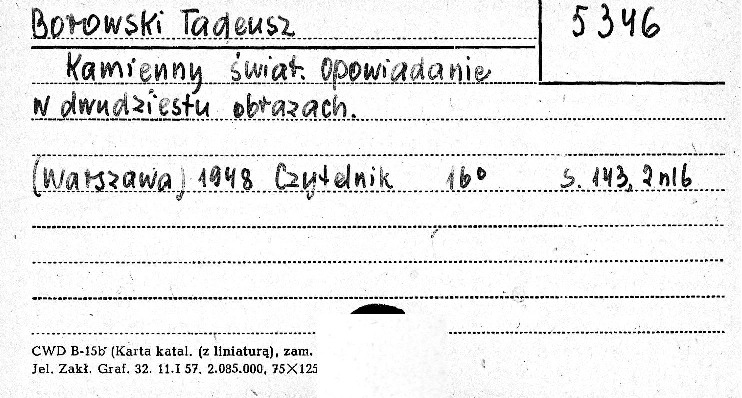 Borowski Tadeusz
5346
Kamienny świat. Opowiadanie
w dwudziestu obrazach.
(Warszawa) 1948 Czytelnik 16° s. 143, 2 nlb
CWD B-15b (Karta katal. (z liniaturą), zam.
Jel. Zakł. Graf. 32. 11.I 57. 2.085.000, 75×125